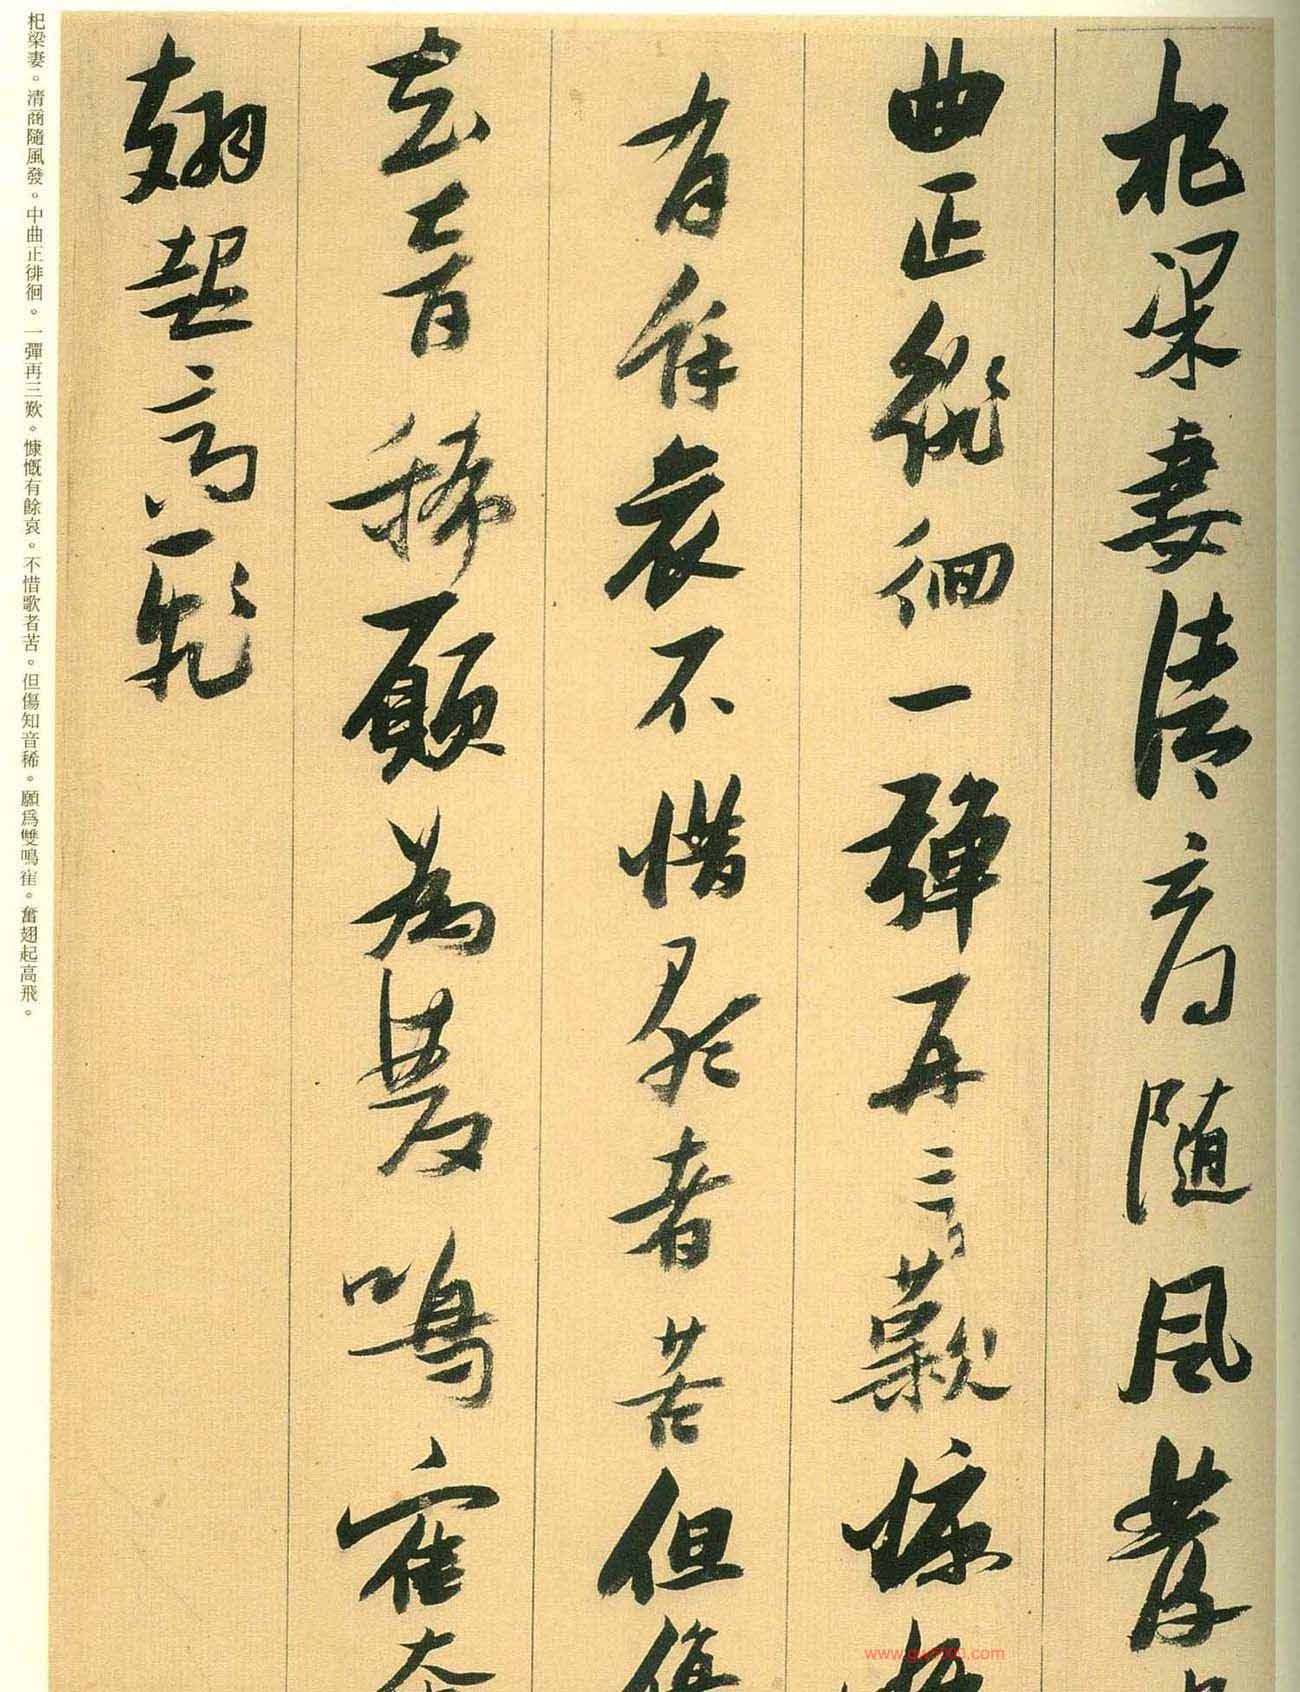 杞梁妻清商随風發中
曲正徘徊一彈再三歎慷慨
有余哀不惜歌者苦但傷
知音稀願為雙鳴隺奮
翅起高飛
杞梁妻。清商隨風發。中曲正徘徊。一彈再三歎。慷慨有餘哀。不惜歌者苦。但傷知音稀。願爲雙鳴隺。奮翅起高飛。